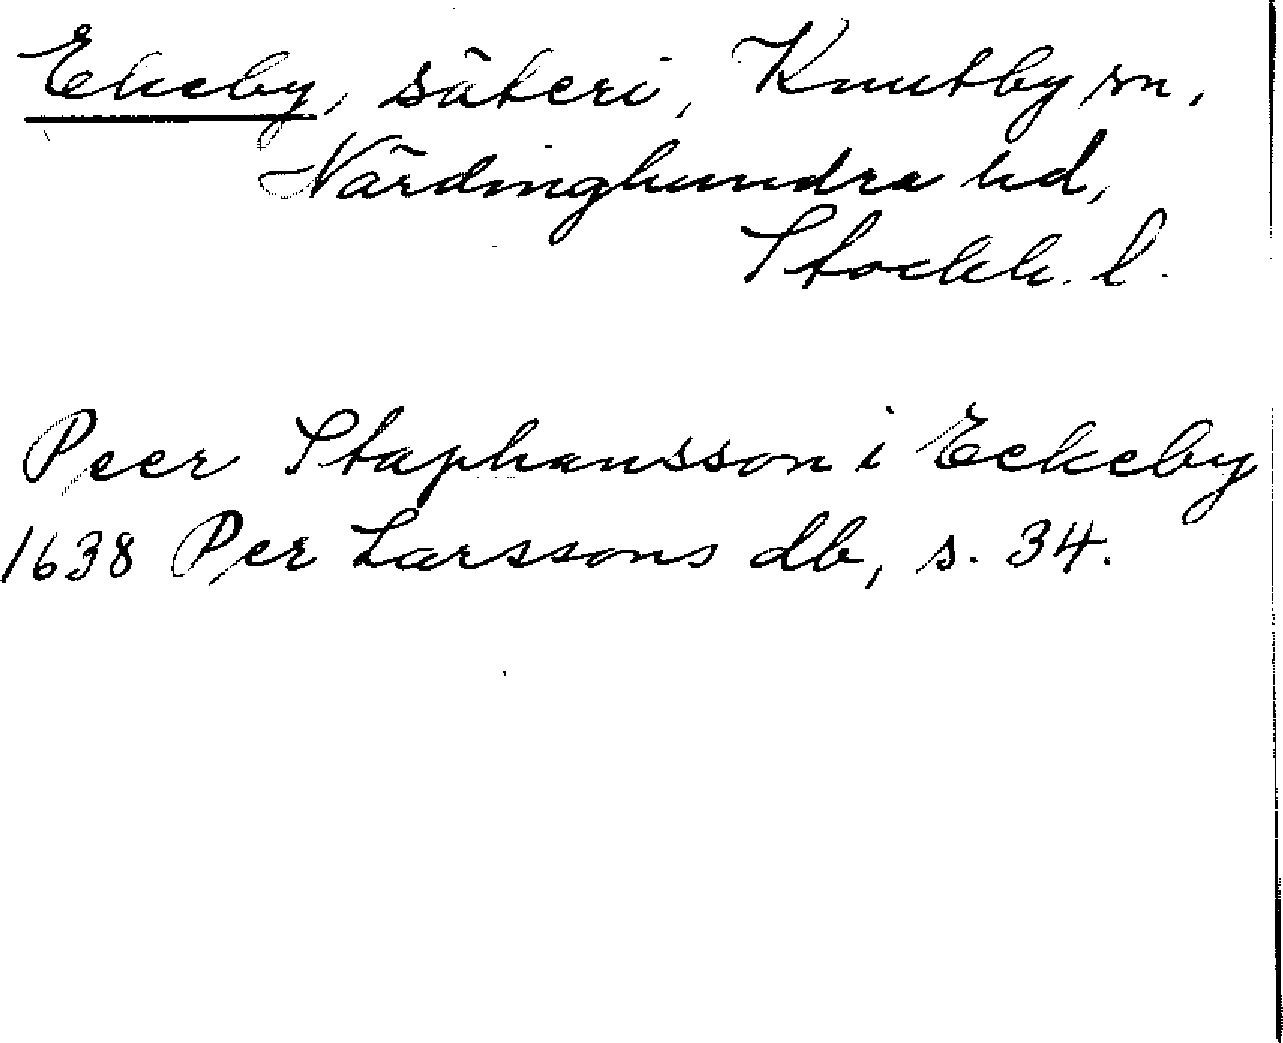 Ekeby, säteri, Knutby sn,
Närdinghundra hd,
Stockh. l.
Peer Staphansson i Eckeby
1638 Per Larssons db, s. 34.